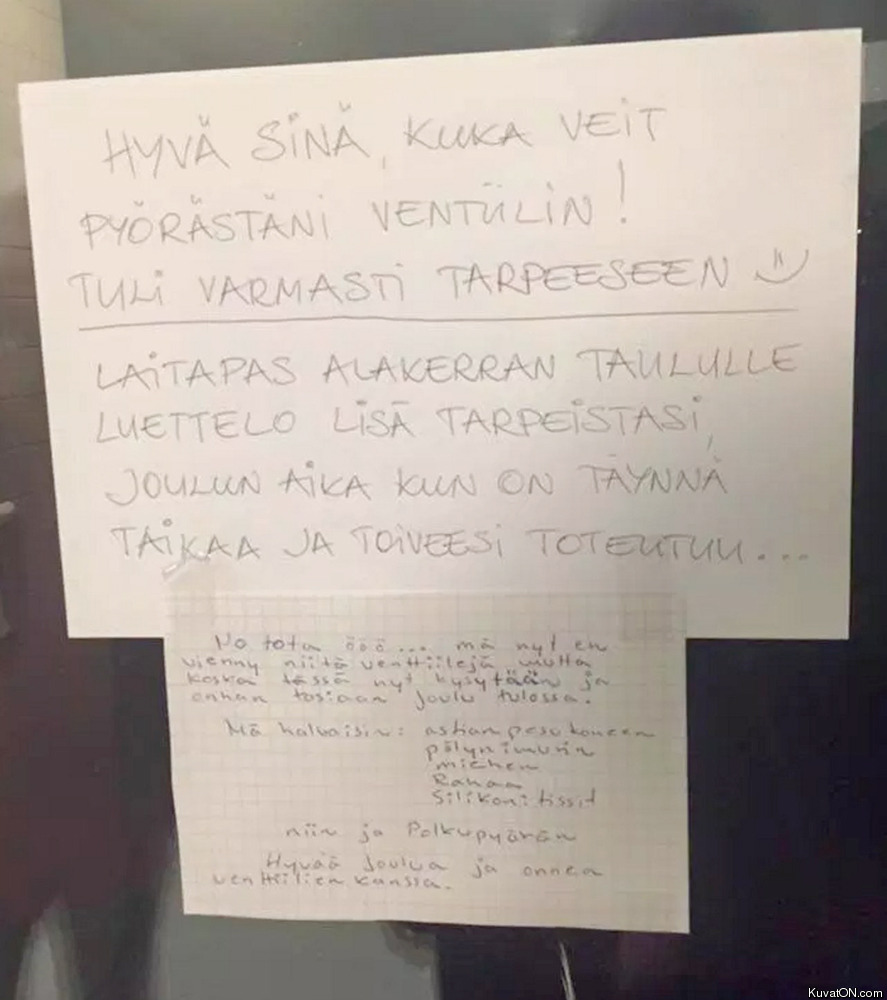 HYVÄ SINÄ, KUKA VEIT
PYÖRÄSTÄNI VENTIILIN!
TULI VARMASTI TARPEESEEN
LAITAPAS ALAKERRAN TAULULLE
LUETTELO LISÄ TARPEISTASI,
JOULUN AIKA KUN ON TÄYNNÄ
TAIKAA JA TOIVEESI TOTEUTUU...
No tota ööö... mä nyt en
vienny niitä venttiilejä mutta
koska tässä nyt kysytään ja
onhan tosiaan joulu tulossa.
Mä haluaisin: astianpesukoneen
pölynimurin
miehen
Rahaa
Silikonitissit
niin ja Polkupyörän
Hyvää Joulua ja onnea
venttiilien kanssa.
KuvatON.com